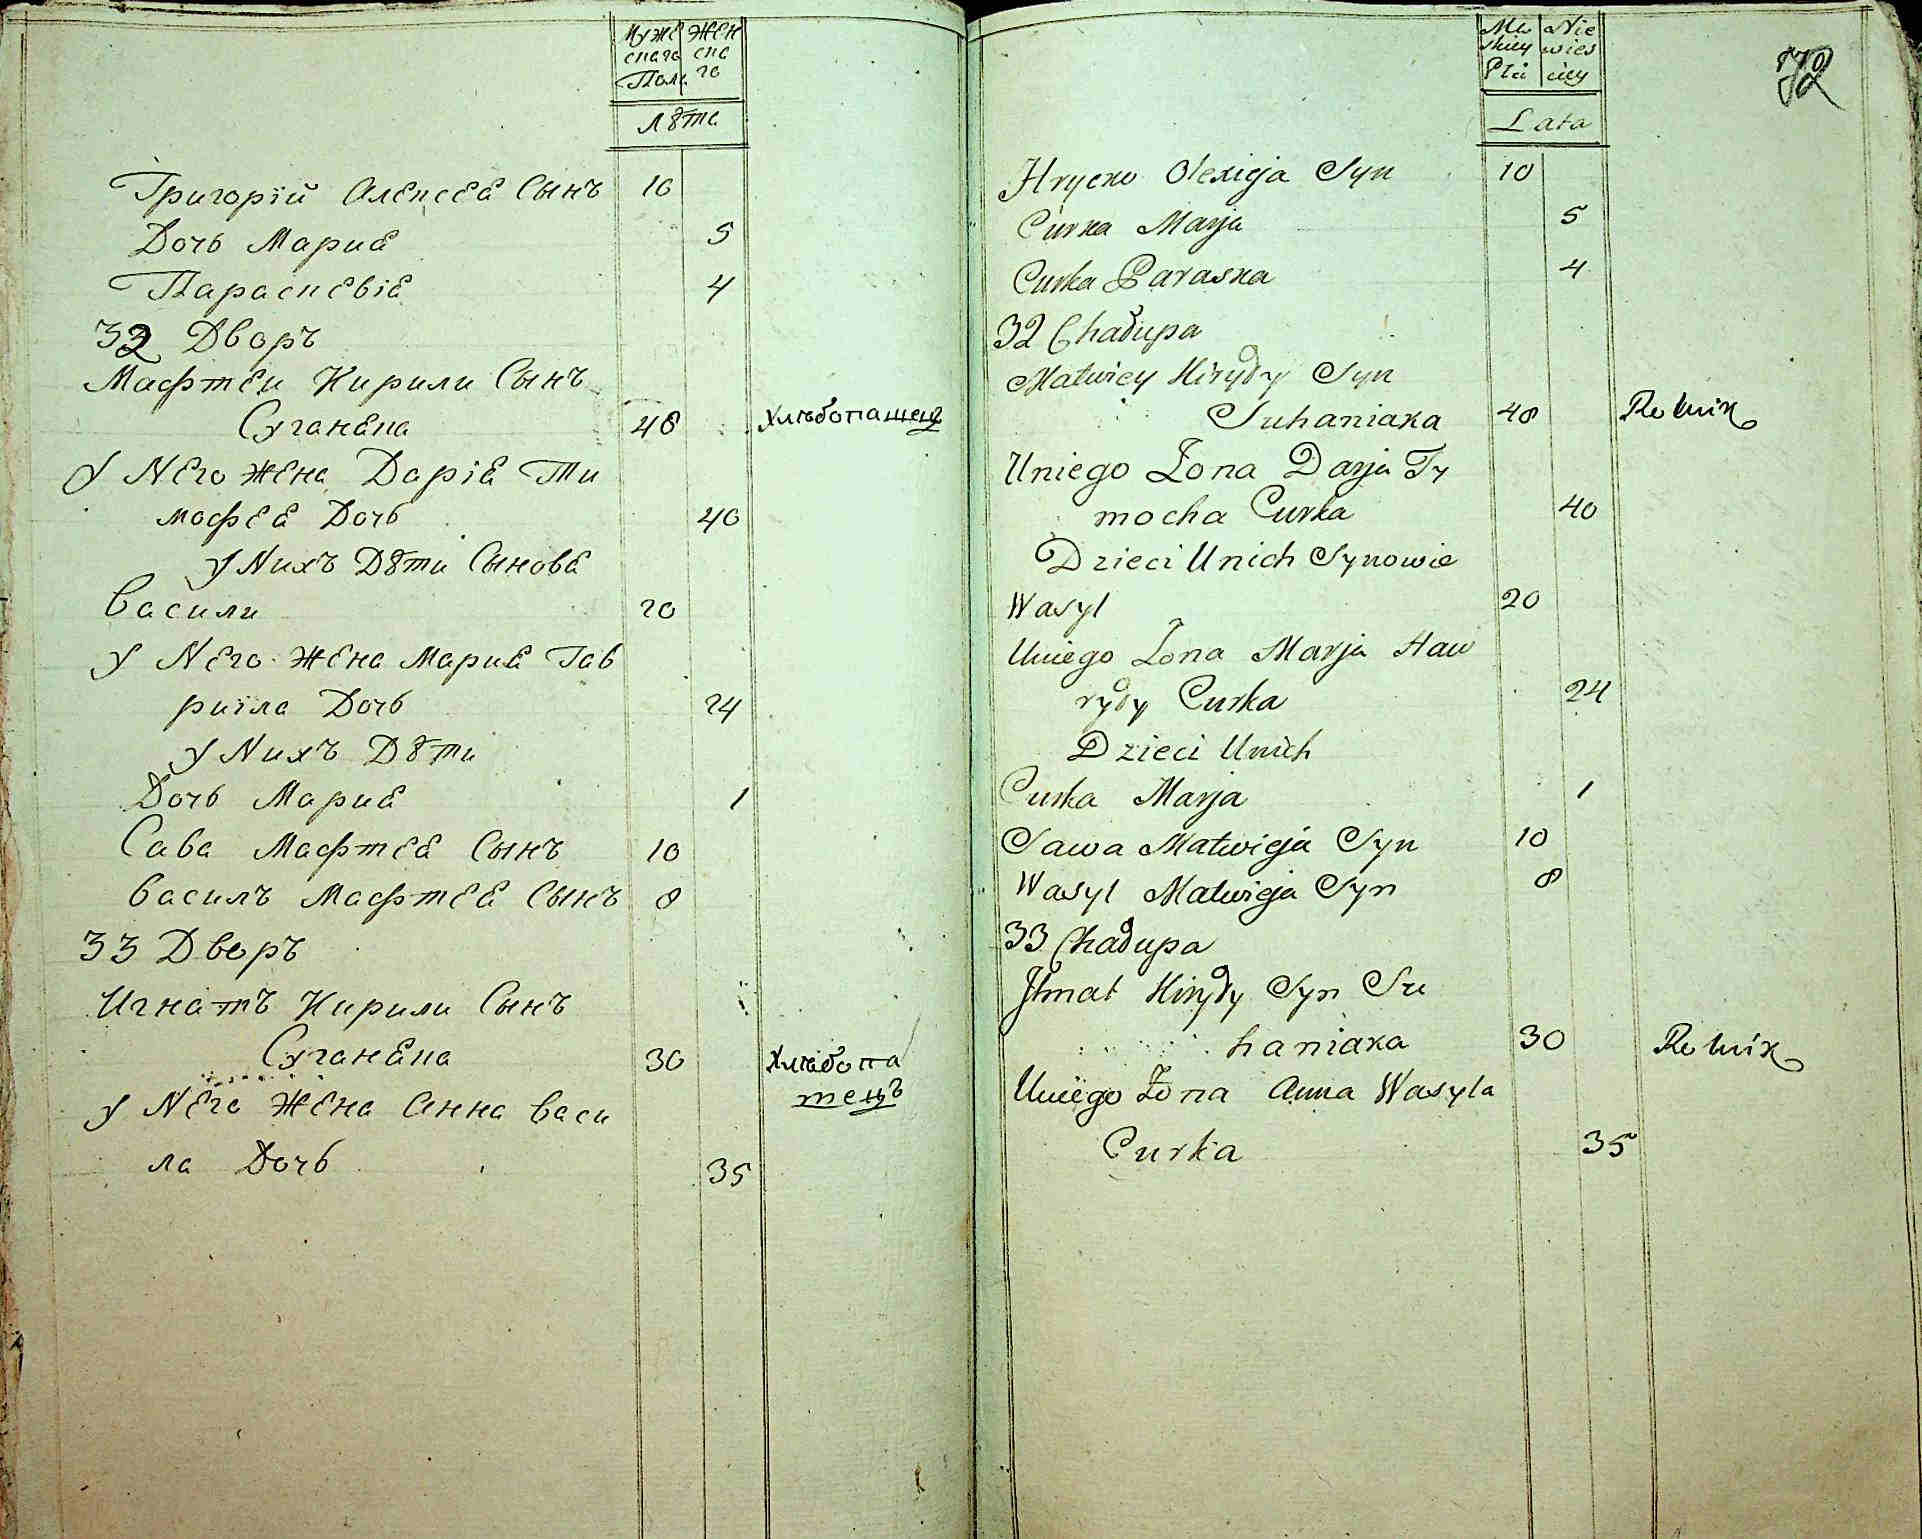 Муже Жен
скаго ска
Пола го
Лѣта
Григорїй Алексея Сынъ 10
Дочь Мариа 5
Параскевіа 4
32 Дворъ
Мафтеи Кирили Сынъ
Суганяка 48 Хлѣбопашецъ
У Него Жена Даріа Ти
мофея Дочь 40
У Нихъ Дѣти Сынова
Васили 20
У Него Жена Мариа Гав
риїла Дочь 24
У Нихъ Дѣти
Дочь Мариа 1
Сава Мафтея Сынъ 10
Василъ Мафтея Сынъ 8
33 Дворъ
Игнатъ Кирили Сынъ
Суганяка 30 Хлѣбопа
шецъ
У Него Жена Анна Васи
ла Дочь 35
Mę Nie
skiey wies
Płci ciey
Lata
72
Hrycko Olexieja Syn 10
Curka Marja 5
Curka Paraska 4
32 Chałupa
Matwiey Kiryły Syn
Suhaniaka 48 Rolnik
Uniego Żona Darja Ty
mocha Curka 40
Dzieci Unich Synowie
Wasyl 20
Uniego Żona Marja Haw
ryły Curka 24
Dzieci Unich
Curka Marja 1
Sawa Matwieja Syn 10
Wasyl Matwieja Syn 8
33 Chałupa
Jhnat Kiryły Syn Su
haniaka 30 Rolnik
Uniego Żona Anna Wasyla
Curka 35